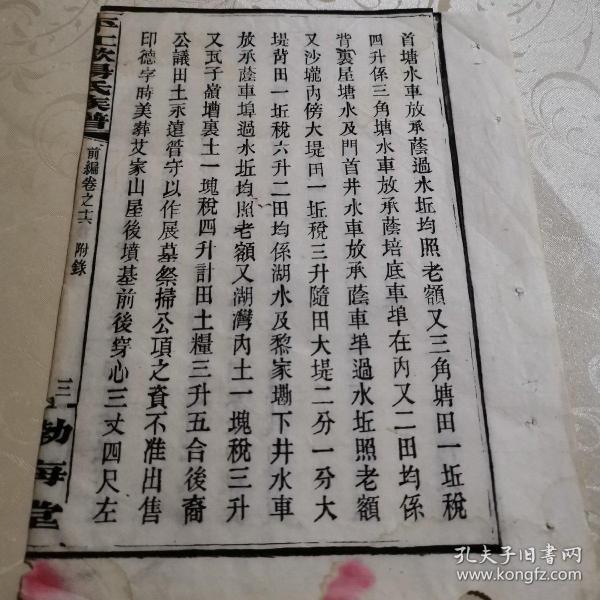 首塘水車放承蔭過水坵均照老額又三角塘田一坵稅
四升係三角塘水車放承蔭培底車埠在內又二田均係
背裏屋塘水及門首井水車放承蔭車埠過水坵照老額
又沙壠內傍大堤田一坵稅三升隨田大堤二分一分大
堤背田一坵稅六升二田均係湖水及黎家墈下井水車
放承蔭車埠過水坵均照老額又湖灣內土一塊稅三升
又瓦子嶺墻裏土一塊稅四升計田土糧三升五合後裔
公議田土永遠管守以作展墓祭掃公項之資不准出售
印德字時美葬艾家山屋後墳基前後穿心三丈四尺左
湯氏族譜
前編卷之十六 附錄
三
勃海堂
孔夫子旧书网
www.kongfz.com